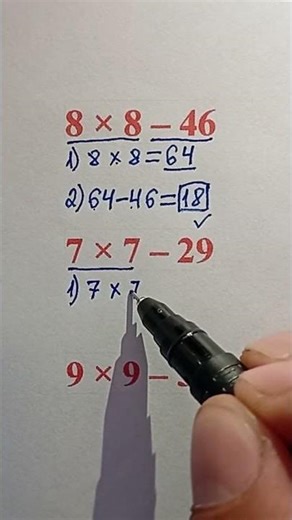 8 × 8 – 46
1) 8 × 8 = 64
2) 64 – 46 = 18
7 × 7 – 29
1) 7 × 7
9 × 9 –